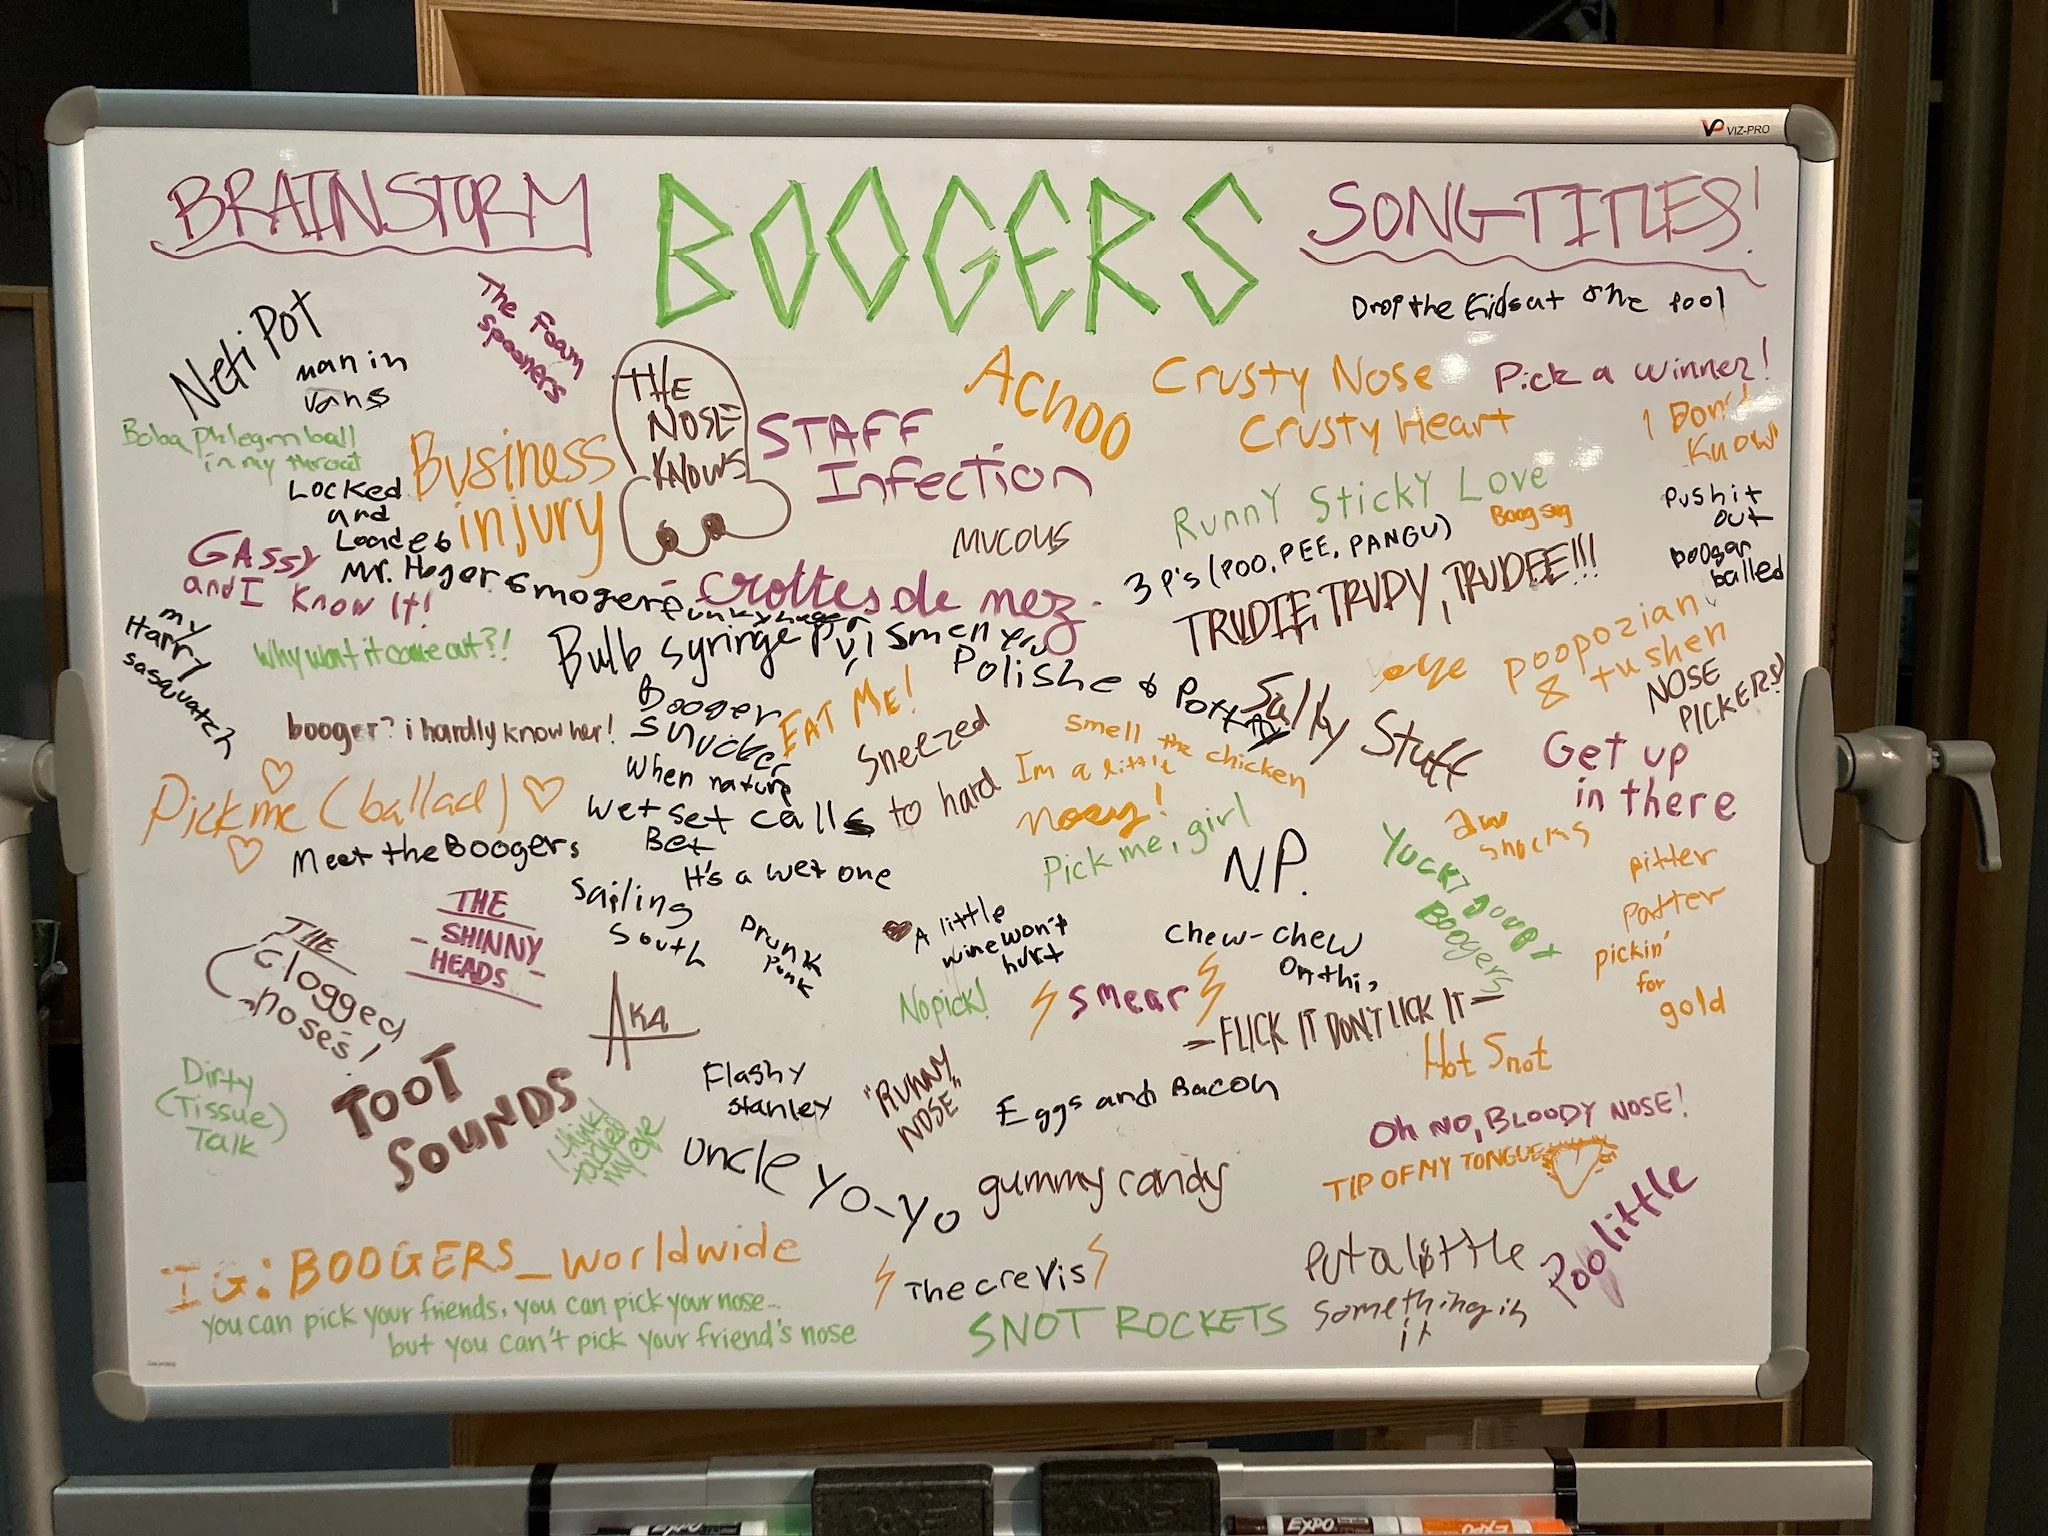 VIZ-PRO
BRAINSTORM
BOOGERS
SONG TITLES!
Drop the Kids at the pool
Neti Pot
The Foam
Spooners
man in
vans
Boba phlegm ball
in my throat
THE
NOSE
KNOWS
ACHOO
Crusty Nose
Crusty Heart
Pick a winner!
I Don't
Know
Business
injury
STAFF
Infection
Locked
and
Loaded
Runny Sticky Love
Boog sug
Push it
out
booger
balled
MUCOUS
3 P's (POO, PEE, PANGU)
GASSY
and I Know It!
Mr. Hoger Smoger
Crottes de nez
TRUDIE, TRUDY, TRUDEE!!!
my
Harry
sasquatch
Why won't it come out?!
Bulb syringe
Polished Potty
eye
poopozian
& tushen
NOSE
PICKERS
Booger
snucker
EAT ME!
booger? i hardly know her!
Sneezed
to hard
Salty Stuff
smell the chicken
Im a little
nosey!
Get up
in there
When nature
calls
Wet set
Bet
Pick me (ballad)
Meet the Boogers
It's a wet one
Pick me, girl
N.P.
Aw
snocks
Yucky Doupy
Boogers
pitter
patter
pickin'
for
gold
THE
SHINNY
HEADS
THE
Clogged
noses!
Sailing
South
Drunk
Punk
A little
wine won't
hurt
Chew-chew
on this
No pick!
smear
AKA
-FLICK IT DON'T LICK IT-
Hot Snot
Dirty
(Tissue)
Talk
TOOT
SOUNDS
I think I
touched
my eye
Flashy
Stanley
"RUNNY
NOSE"
Eggs and Bacon
Oh NO, BLOODY NOSE!
TIP OF MY TONGUE
Uncle yo-yo
gummy candy
Poo little
IG: BOOGERS_worldwide
The crevis
Put a little
something in
it
you can pick your friends, you can pick your nose...
but you can't pick your friend's nose
SNOT ROCKETS
EXPO
EXPO
EXPO